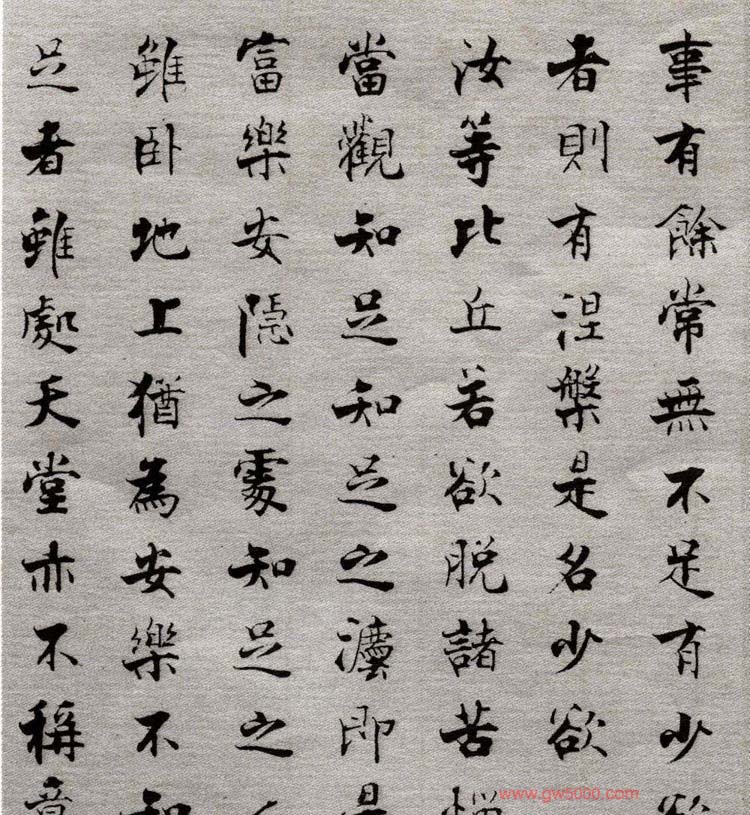 事有餘常無不足有少欲
者則有涅槃是名少欲
汝等比丘若欲脫諸苦惱
當觀知足知足之灋即是
富樂安隱之處知足之人
雖卧地上猶為安樂不知
足者雖處天堂亦不稱意
www.gw5000.com